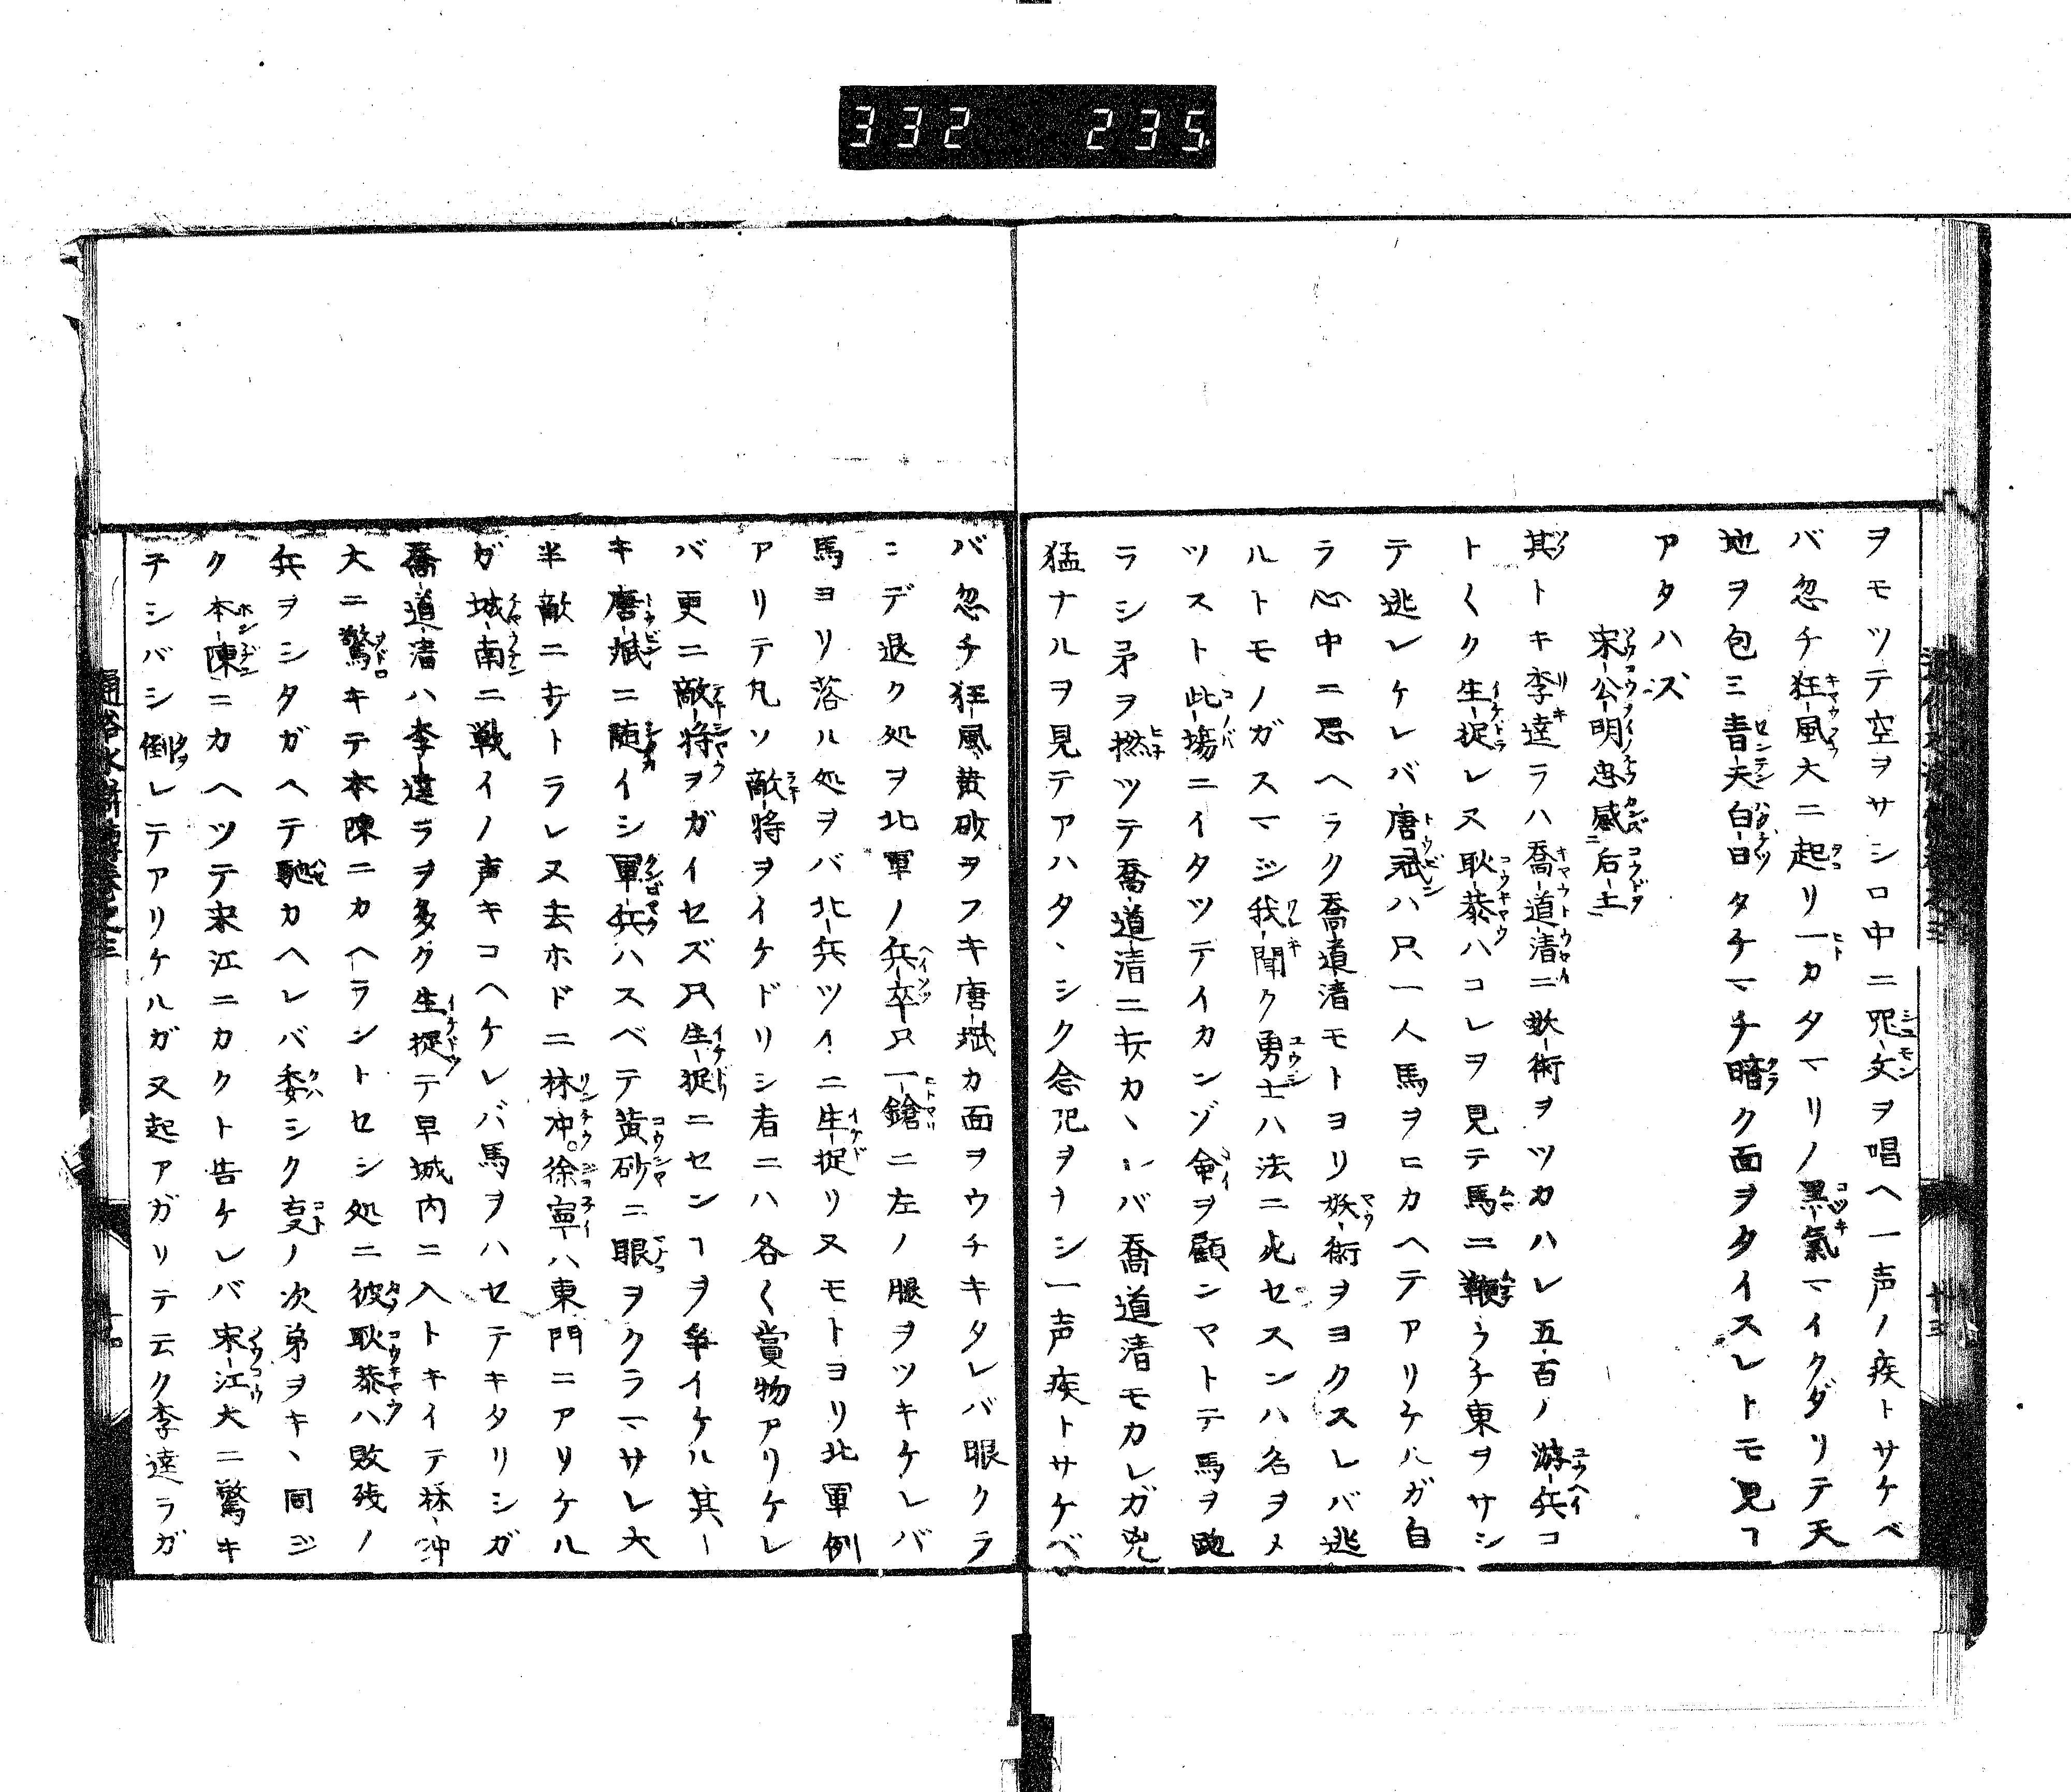 332 235
ヲモツテ空ヲサシロ中ニ咒文ヲ唱ヘ一声ノ疾トサケベ
バ忽チ狂風大ニ起リ一カタマリノ黒氣マイクダリテ天
地ヲ包ミ青天白日タチマチ暗ク面ヲタイスレトモ見ヿ
アタハズ
宋公明忠感后土
其トキ李逵ラハ喬道清ニ妖術ヲツカハレ五百ノ游兵コ
トく生捉レヌ耿恭ハコレヲ見テ馬ニ鞭ウチ東ヲサシ
テ逃レケレバ唐斌ハ只一人馬ヲヒカヘテアリケルガ自
ラ心中ニ思ヘラク喬道清モトヨリ妖術ヲヨクスレバ逃
ルトモノガスマジ我聞ク勇士ハ法ニ死セスンハ名ヲメ
ツスト此塲ニイタツテイカンゾ命ヲ顧ンマトテ馬ヲ跑
ラシ矛ヲ撚ツテ喬道清ニ キカヽレバ喬道清モカレガ兇
猛ナルヲ見テアハタヽシク念咒ヲナシ一声疾トサケベ
バ忽チ狂風黄砂ヲフキ唐斌カ面ヲウチキタレバ眼クラ
ニデ退ク処ヲ北軍ノ兵卒只一鎗ニ左ノ腿ヲツキケレバ
馬ヨリ落ル処ヲバ北兵ツイニ生捉リヌモトヨリ北軍例
アリテ凡ソ敵将ヲイケドリシ者ニハ各く賞物アリケレ
バ更ニ敵将ヲガイセズ只生捉ニセンヿヲ争イケル其
キ唐斌ニ随イシ軍兵ハスベテ黄砂ニ眼ヲクラマサレ大
半敵ニ トラレヌ去ホドニ林冲。徐寧ハ東門ニアリケル
ガ城南ニ戦イノ声キコヘケレバ馬ヲハセテキタリシガ
喬道清ハ李逵ラヲ多ク生捉テ早城内ニ入トキイテ林冲
大ニ驚キテ本陳ニカヘラントセシ処ニ彼耿恭ハ敗残ノ
兵ヲシタガヘテ馳カヘレバ委シク変ノ次弟ヲキヽ同ジ
ク本陳ニカヘツテ宋江ニカクト告ケレバ宋江大ニ驚キ
テシバシ倒レテアリケルガ又起アガリテ云ク李逵ラガ